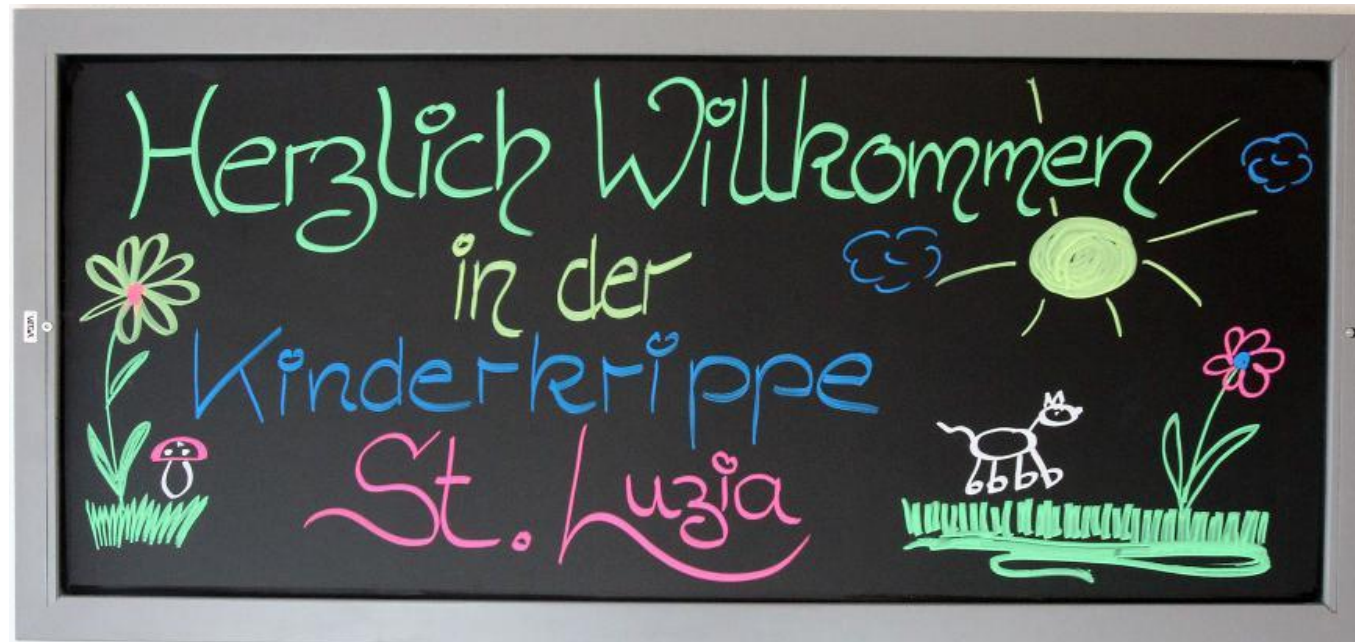 Herzlich Willkommen
in der
Kinderkrippe
St. Luzia